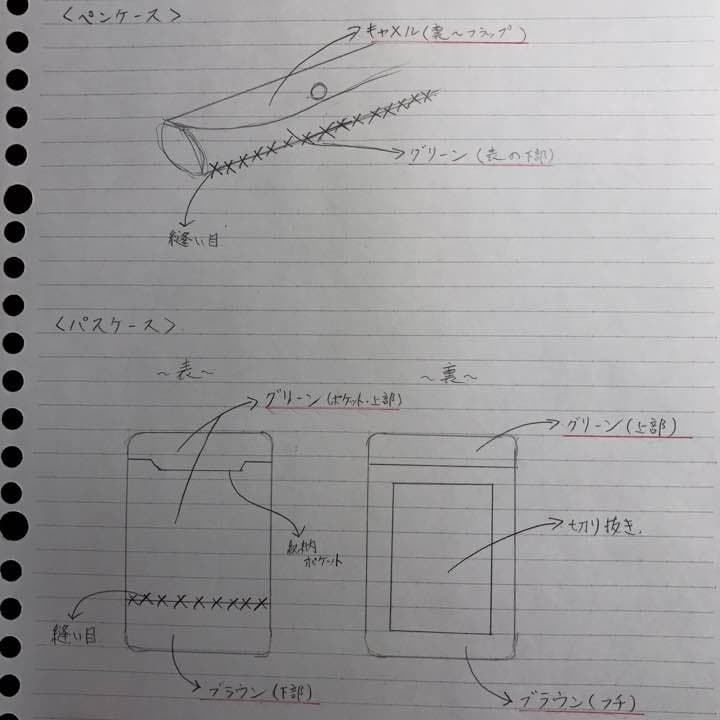 〈ペンケース〉
キャメル(裏〜フラップ)
グリーン(表の下部)
縫い目
〈パスケース〉
〜表〜
〜裏〜
グリーン(ポケット・上部)
グリーン(上部)
切り抜き
収納
ポケット
縫い目
ブラウン(下部)
ブラウン(フチ)